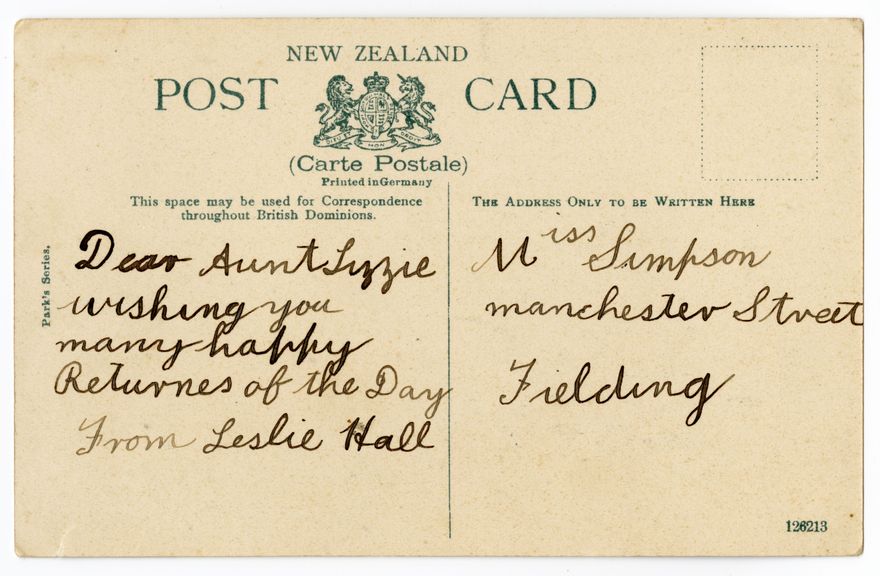 NEW ZEALAND
POST CARD
DIEU ET MON DROIT
(Carte Postale)
Printed in Germany
This space may be used for Correspondence
throughout British Dominions.
THE ADDRESS ONLY TO BE WRITTEN HERE
Park's Series.
Dear Aunt Lizzie
wishing you
many happy
Returnes of the Day
From Leslie Hall
Miss Simpson
manchester Street
Fielding
126213